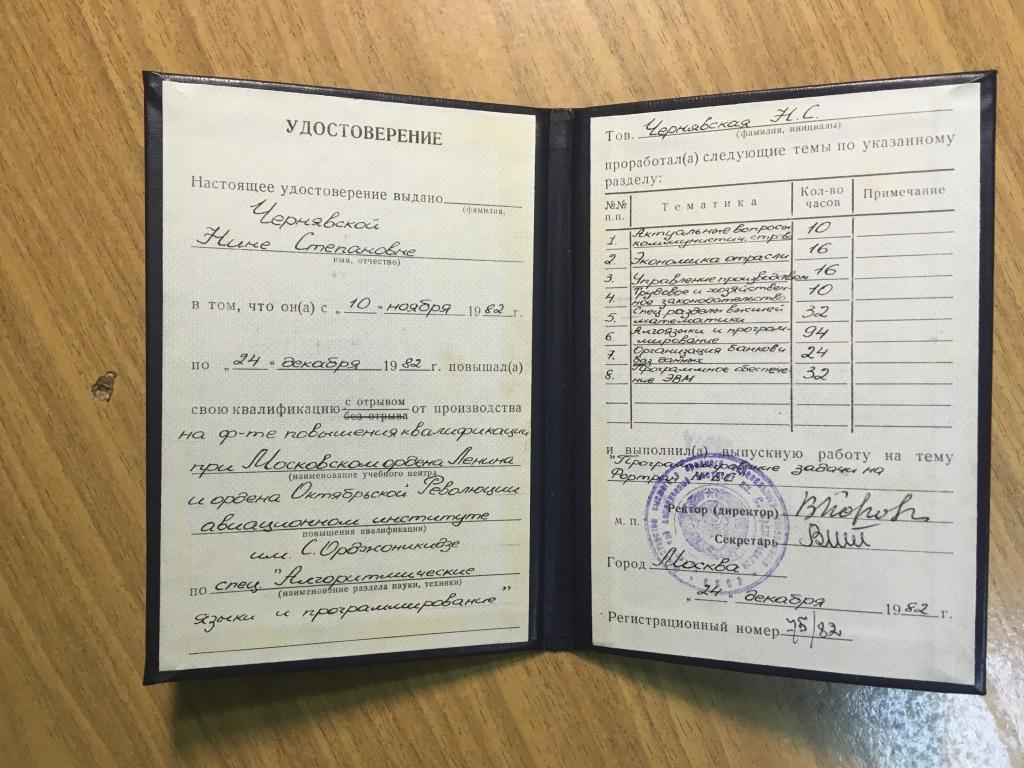 УДОСТОВЕРЕНИЕ
Настоящее удостоверение выдано
(фамилия,
Чернявской
Нине Степановне
имя, отчество)
в том, что он(а) с „10“ ноября 1982г.
по „24“ декабря 1982г. повышал(а)
свою квалификацию с отрывом без отрыва от производства
на ф-те повышения квалификации
при Московском ордена Ленина
(наименование учебного центра,
и ордена Октябрьской Революции
авиационном институте
повышения квалификации)
им. С. Орджоникидзе
по спец. "Алгоритмические
(наименование раздела науки, техники)
языки и программирование"
Тов. Чернявская Н.С.
(фамилия, инициалы)
проработал(а) следующие темы по указанному
разделу:
№№ п.п. Тематика Кол-во часов Примечание
1. Актуальные вопросы коммунистич. стр-ва 10
2. Экономика отрасли 16
3. Управление производством 16
4. Трудовое и хозяйственное законодательство 10
5. Спец. разделы высшей математики 32
6. Алгоязыки и программирование 94
7. Организация банков и баз данных 24
8. Программное обеспечение ЭВМ 32
и выполнил(а) выпускную работу на тему
"Программирование задачи на
Фортран
Ректор (директор)
М. П.
Секретарь
Город Москва
„24“ декабря 1982г.
Регистрационный номер 75/82